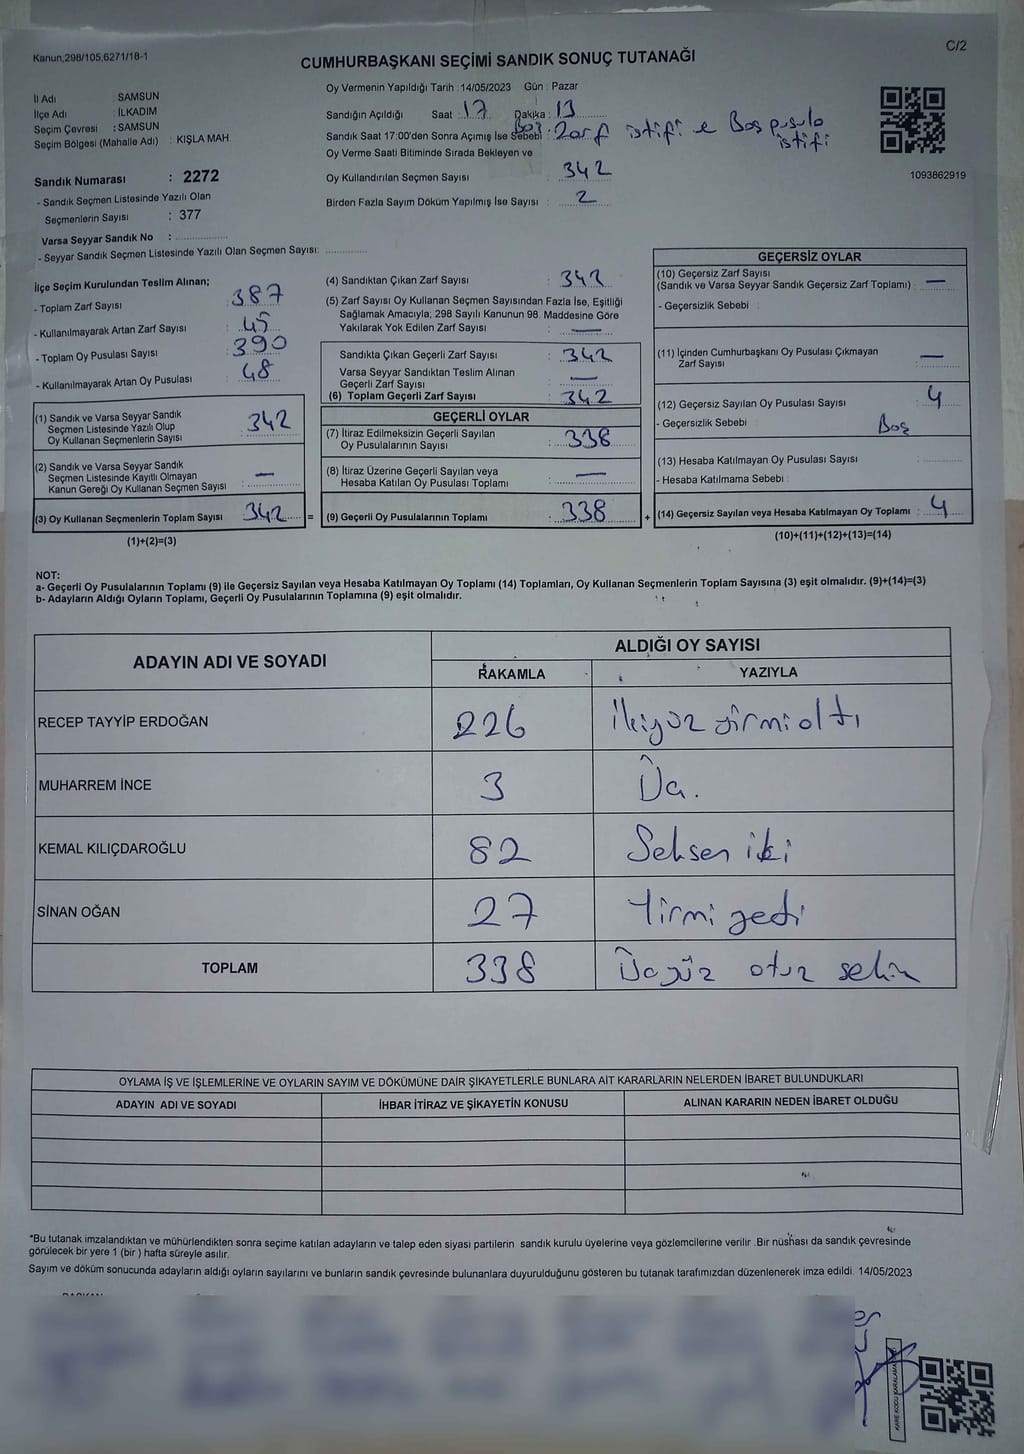 Kanun,298/105,6271/18-1
C/2
CUMHURBAŞKANI SEÇİMİ SANDIK SONUÇ TUTANAĞI
İl Adı : SAMSUN
İlçe Adı : İLKADIM
Seçim Çevresi : SAMSUN
Seçim Bölgesi (Mahalle Adı) : KIŞLA MAH.
Sandık Numarası : 2272
- Sandık Seçmen Listesinde Yazılı Olan
Seçmenlerin Sayısı : 377
Varsa Seyyar Sandık No :
- Seyyar Sandık Seçmen Listesinde Yazılı Olan Seçmen Sayısı:
Oy Vermenin Yapıldığı Tarih : 14/05/2023 Gün : Pazar
Sandığın Açıldığı Saat : 17 Dakika : 13
Sandık Saat 17:00'den Sonra Açımış İse Sebebi : Boş Zarf istifi e Boş pusula istifi
Oy Verme Saati Bitiminde Sırada Bekleyen ve
Oy Kullandırılan Seçmen Sayısı : 342
Birden Fazla Sayım Döküm Yapılmış İse Sayısı : 2
1093862919
İlçe Seçim Kurulundan Teslim Alınan;
- Toplam Zarf Sayısı : 387
- Kullanılmayarak Artan Zarf Sayısı : 45
- Toplam Oy Pusulası Sayısı : 390
- Kullanılmayarak Artan Oy Pusulası : 48
(1) Sandık ve Varsa Seyyar Sandık
Seçmen Listesinde Yazılı Olup
Oy Kullanan Seçmenlerin Sayısı : 342
(2) Sandık ve Varsa Seyyar Sandık
Seçmen Listesinde Kayıtlı Olmayan
Kanun Gereği Oy Kullanan Seçmen Sayısı : —
(3) Oy Kullanan Seçmenlerin Toplam Sayısı : 342 =
(1)+(2)=(3)
(4) Sandıktan Çıkan Zarf Sayısı : 342
(5) Zarf Sayısı Oy Kullanan Seçmen Sayısından Fazla İse, Eşitliği
Sağlamak Amacıyla; 298 Sayılı Kanunun 98. Maddesine Göre
Yakılarak Yok Edilen Zarf Sayısı : —
Sandıkta Çıkan Geçerli Zarf Sayısı : 342
Varsa Seyyar Sandıktan Teslim Alınan
Geçerli Zarf Sayısı : —
(6) Toplam Geçerli Zarf Sayısı : 342
GEÇERLİ OYLAR
(7) İtiraz Edilmeksizin Geçerli Sayılan
Oy Pusulalarının Sayısı : 338
(8) İtiraz Üzerine Geçerli Sayılan veya
Hesaba Katılan Oy Pusulası Toplamı : —
(9) Geçerli Oy Pusulalarının Toplamı : 338 +
GEÇERSİZ OYLAR
(10) Geçersiz Zarf Sayısı
(Sandık ve Varsa Seyyar Sandık Geçersiz Zarf Toplamı) : —
- Geçersizlik Sebebi :
(11) İçinden Cumhurbaşkanı Oy Pusulası Çıkmayan
Zarf Sayısı : —
(12) Geçersiz Sayılan Oy Pusulası Sayısı : 4
- Geçersizlik Sebebi : Boş
(13) Hesaba Katılmayan Oy Pusulası Sayısı :
- Hesaba Katılmama Sebebi :
(14) Geçersiz Sayılan veya Hesaba Katılmayan Oy Toplamı : 4
(10)+(11)+(12)+(13)=(14)
NOT:
a- Geçerli Oy Pusulalarının Toplamı (9) ile Geçersiz Sayılan veya Hesaba Katılmayan Oy Toplamı (14) Toplamları, Oy Kullanan Seçmenlerin Toplam Sayısına (3) eşit olmalıdır. (9)+(14)=(3)
b- Adayların Aldığı Oyların Toplamı, Geçerli Oy Pusulalarının Toplamına (9) eşit olmalıdır.
ADAYIN ADI VE SOYADI
ALDIĞI OY SAYISI
RAKAMLA YAZIYLA
RECEP TAYYİP ERDOĞAN 226 İkiyüz yirmi altı
MUHARREM İNCE 3 Üç.
KEMAL KILIÇDAROĞLU 82 Seksen iki
SİNAN OĞAN 27 Yirmi yedi
TOPLAM 338 Üçyüz otuz sekiz
OYLAMA İŞ VE İŞLEMLERİNE VE OYLARIN SAYIM VE DÖKÜMÜNE DAİR ŞİKAYETLERLE BUNLARA AİT KARARLARIN NELERDEN İBARET BULUNDUKLARI
ADAYIN ADI VE SOYADI İHBAR İTİRAZ VE ŞİKAYETİN KONUSU ALINAN KARARIN NEDEN İBARET OLDUĞU
*Bu tutanak imzalandıktan ve mühürlendikten sonra seçime katılan adayların ve talep eden siyasi partilerin sandık kurulu üyelerine veya gözlemcilerine verilir .Bir nüshası da sandık çevresinde
görülecek bir yere 1 (bir ) hafta süreyle asılır.
Sayım ve döküm sonucunda adayların aldığı oyların sayılarını ve bunların sandık çevresinde bulunanlara duyurulduğunu gösteren bu tutanak tarafımızdan düzenlenerek imza edildi. 14/05/2023